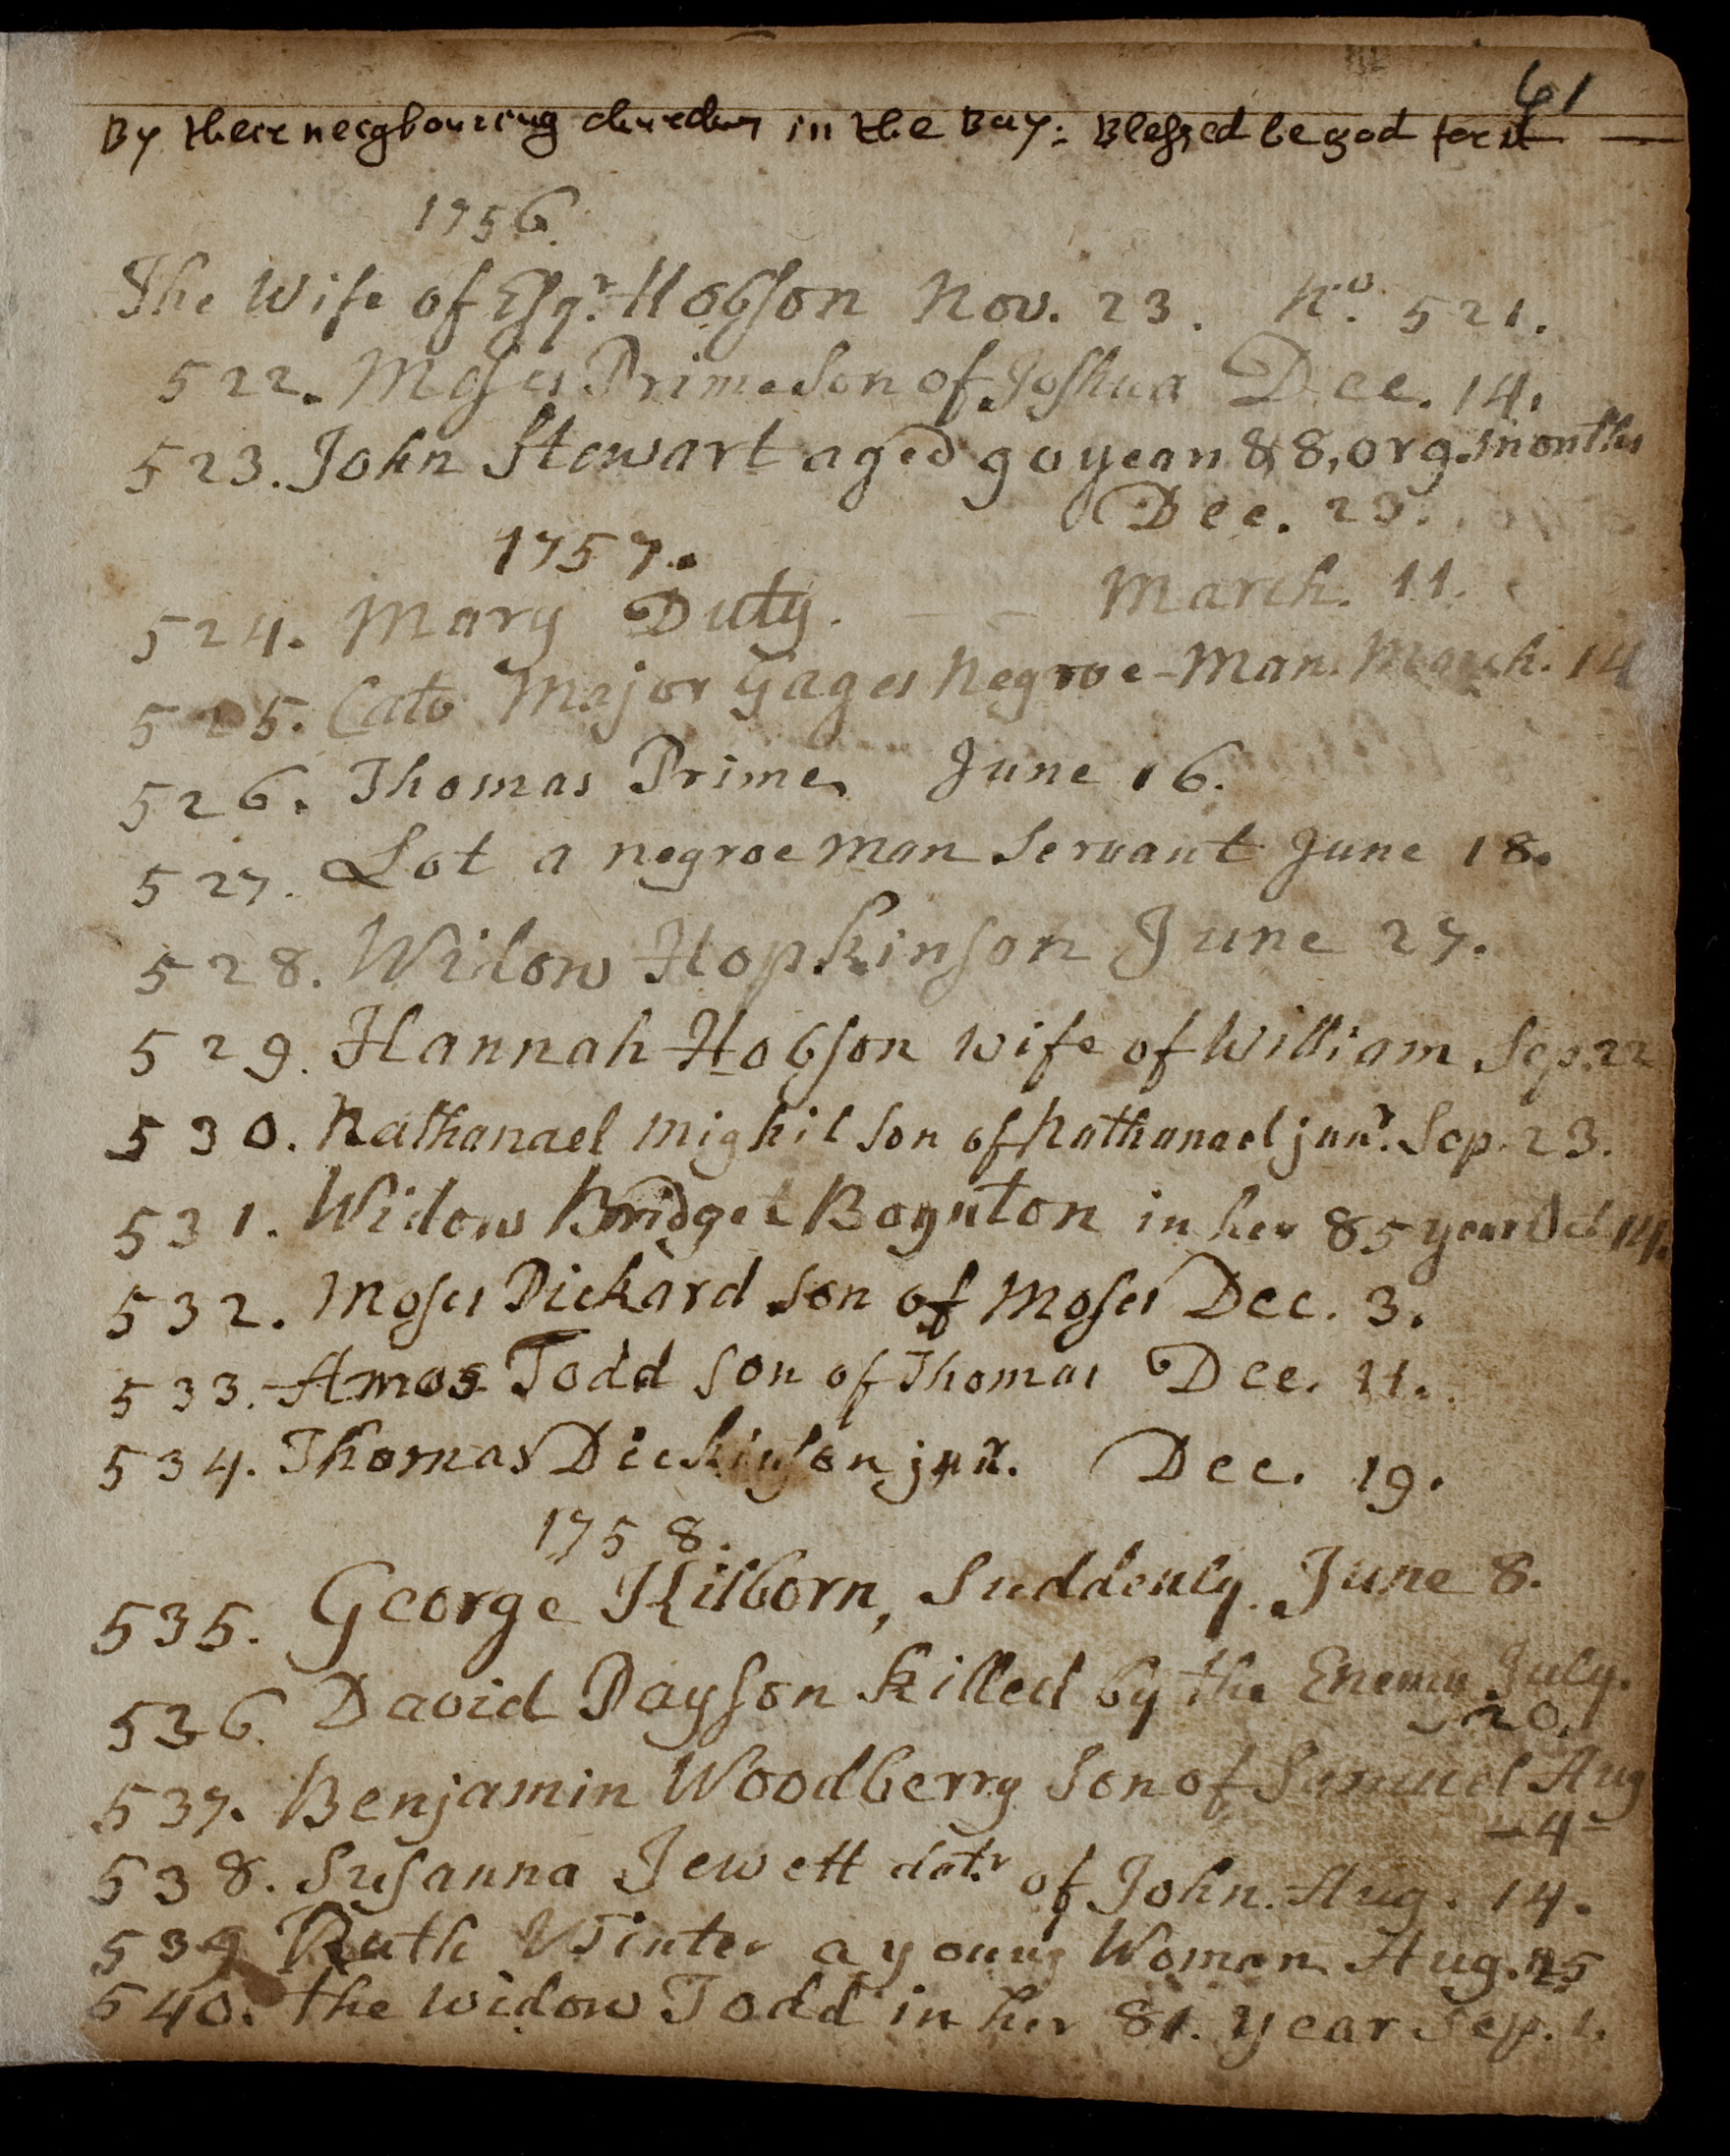 61
By their neighbouring churches in the Bay: Blessed be god for it
1756.
The Wife of Esqr. Hobson Nov. 23. No. 521.
522. Moses Prime Son of Joshua Dec. 14.
523. John Stewart aged 90 years & 8, or 9. months
Dec. 23.
1757.
524. Mary Duty. March. 11.
525. Cato Major Gages Negroe-Man. March. 14
526. Thomas Prime. June 16.
527. Lot a negroe man Servant June 18.
528. Widow Hopkinson June 27.
529. Hannah Hobson wife of William Sep. 22
530. Nathanael mighil son of Nathanael junr. Sep. 23.
531. Widow Bridget Boynton in her 85 year Oct 14.
532. Moses Pickard son of Moses Dec. 3.
533. Amos Todd son of Thomas Dec. 11.
534. Thomas Dickinson junr. Dec. 19.
1758.
535. George Kilborn, Suddenly. June 8.
536. David Payson killed by the Enemy July.
20.
537. Benjamin Woodberry Son of Samuel Aug
-4-
538. Susanna Jewett datr. of John. Aug. 14.
539 Ruth Winter a young Woman. Aug. 25
540. the widow Todd in her 81. year Sep. 1.